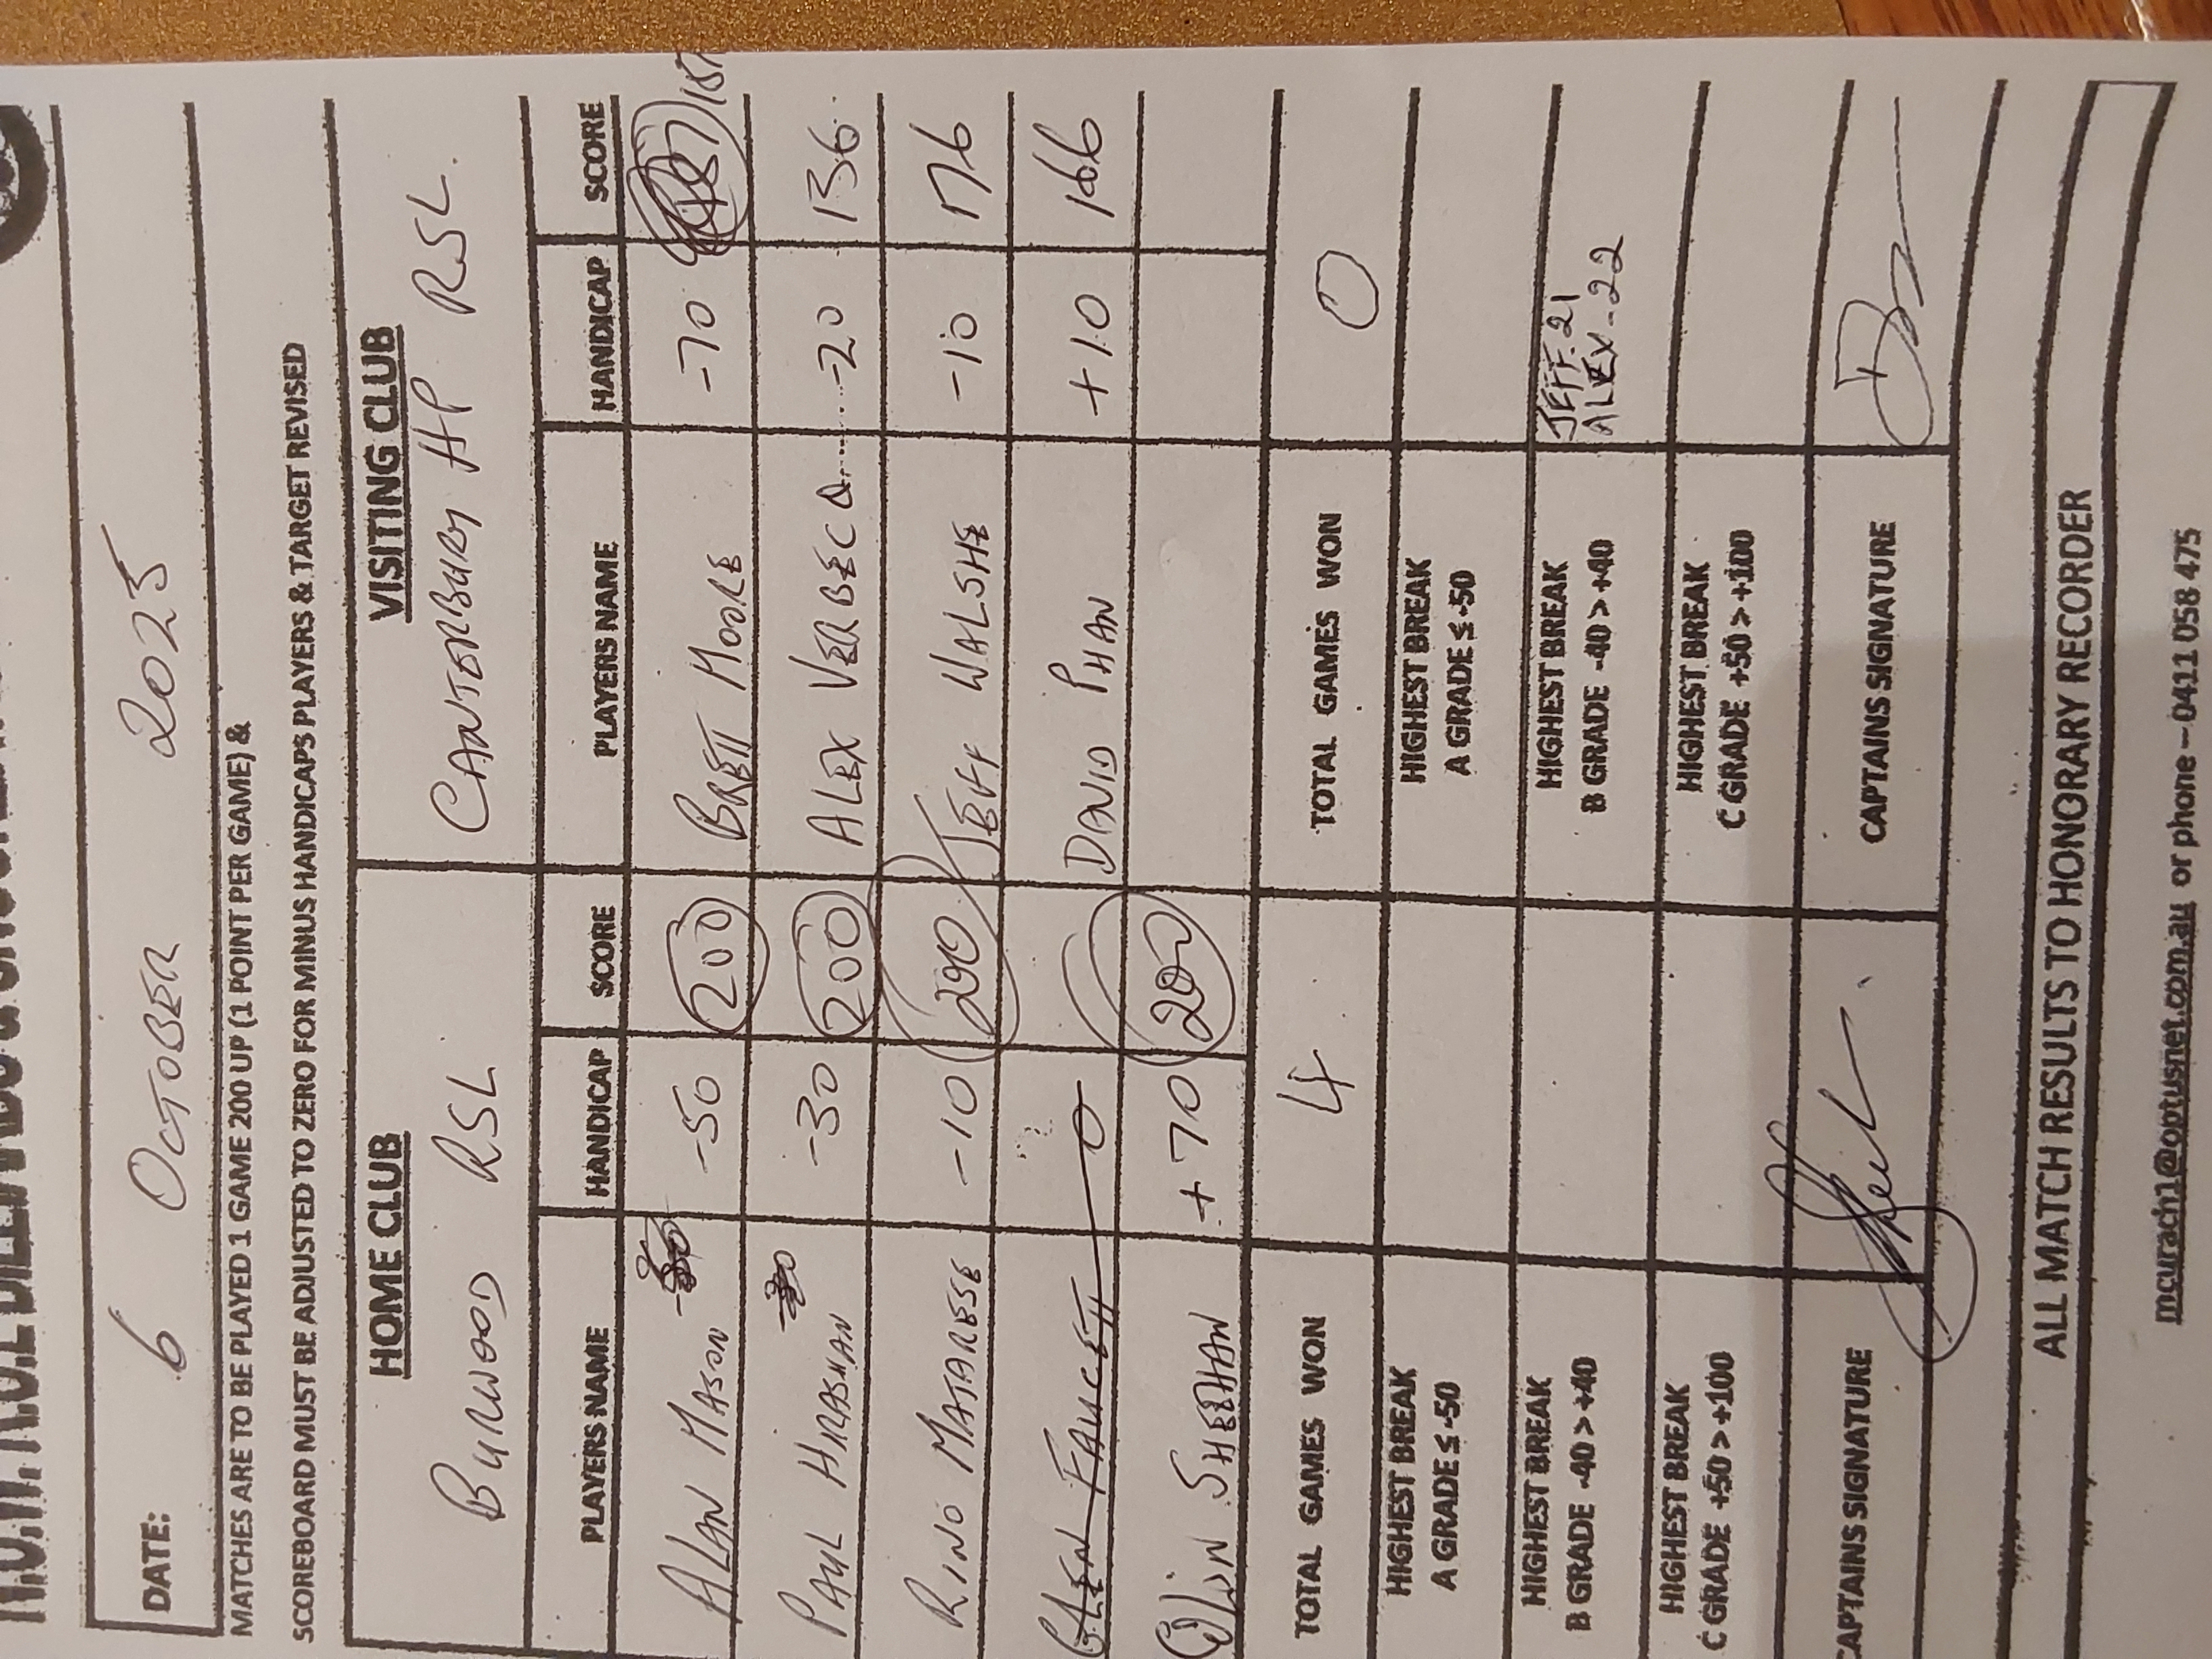 DATE: 6 OCTOBER 2025
MATCHES ARE TO BE PLAYED 1 GAME 200 UP (1 POINT PER GAME) &
SCOREBOARD MUST BE ADJUSTED TO ZERO FOR MINUS HANDICAPS PLAYERS & TARGET REVISED
HOME CLUB VISITING CLUB
BURWOOD RSL CANTERBURY HP RSL.
PLAYERS NAME HANDICAP SCORE PLAYERS NAME HANDICAP SCORE
ALAN MASON -50 200 BRETT MOORE -70 157
PAUL HRASHAN -30 200 ALEX VERBECA -20 136
RINO MATARESE -10 200 JEFF WALSHE -10 176
GLEN FAUCETT 0 DAVID PHAN +10 166
COLIN SHEEHAN +70 200
TOTAL GAMES WON 4 TOTAL GAMES WON 0
HIGHEST BREAK HIGHEST BREAK
A GRADE ≤ -50 A GRADE ≤ -50
HIGHEST BREAK HIGHEST BREAK JEFF-21
B GRADE -40 > +40 B GRADE -40 > +40 ALEX-22
HIGHEST BREAK HIGHEST BREAK
C GRADE +50 > +100 C GRADE +50 > +100
CAPTAINS SIGNATURE CAPTAINS SIGNATURE
ALL MATCH RESULTS TO HONORARY RECORDER
mcurach1@optusnet.com.au or phone – 0411 058 475